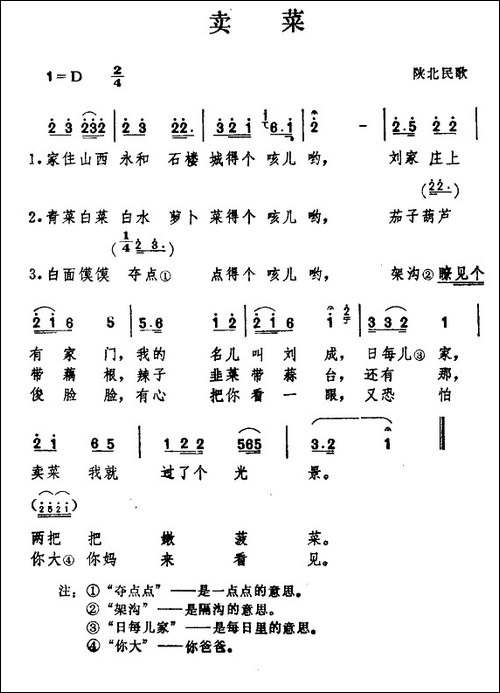 卖 菜
1=D 2/4 陕北民歌
2 3 232 2 3 22. 3 2 1 6.1 2 - 2.5 2 2
1.家住山西 永和 石楼 城得个 咳儿 哟， 刘家 庄上
(22.)
2.青菜白菜 白水 萝卜 菜得个 咳儿 哟， 茄子葫芦
(1/4 2 3.)
3.白面馍馍 夺点① 点得个 咳儿 哟， 架沟②瞭见个
2 1 6 5 5.6 1 2 2 1 6 1 3 3 2 1
有 家 门，我的 名儿 叫 刘 成，日每儿③ 家，
带 藕 根，辣子 韭菜 带 蒜 台，还有 那，
俊 脸 脸，有心 把你 看 一 眼，又恐 怕
2 1 6 5 1 2 2 565 3.2 1
卖菜 我就 过了个 光 景。
(2521)
两把 把 嫩 菠 菜。
你大④ 你妈 来 看 见。
注：①“夺点点”——是一点点的意思。
②“架沟”——是隔沟的意思。
③“日每儿家”——是每日里的意思。
④“你大”——你爸爸。